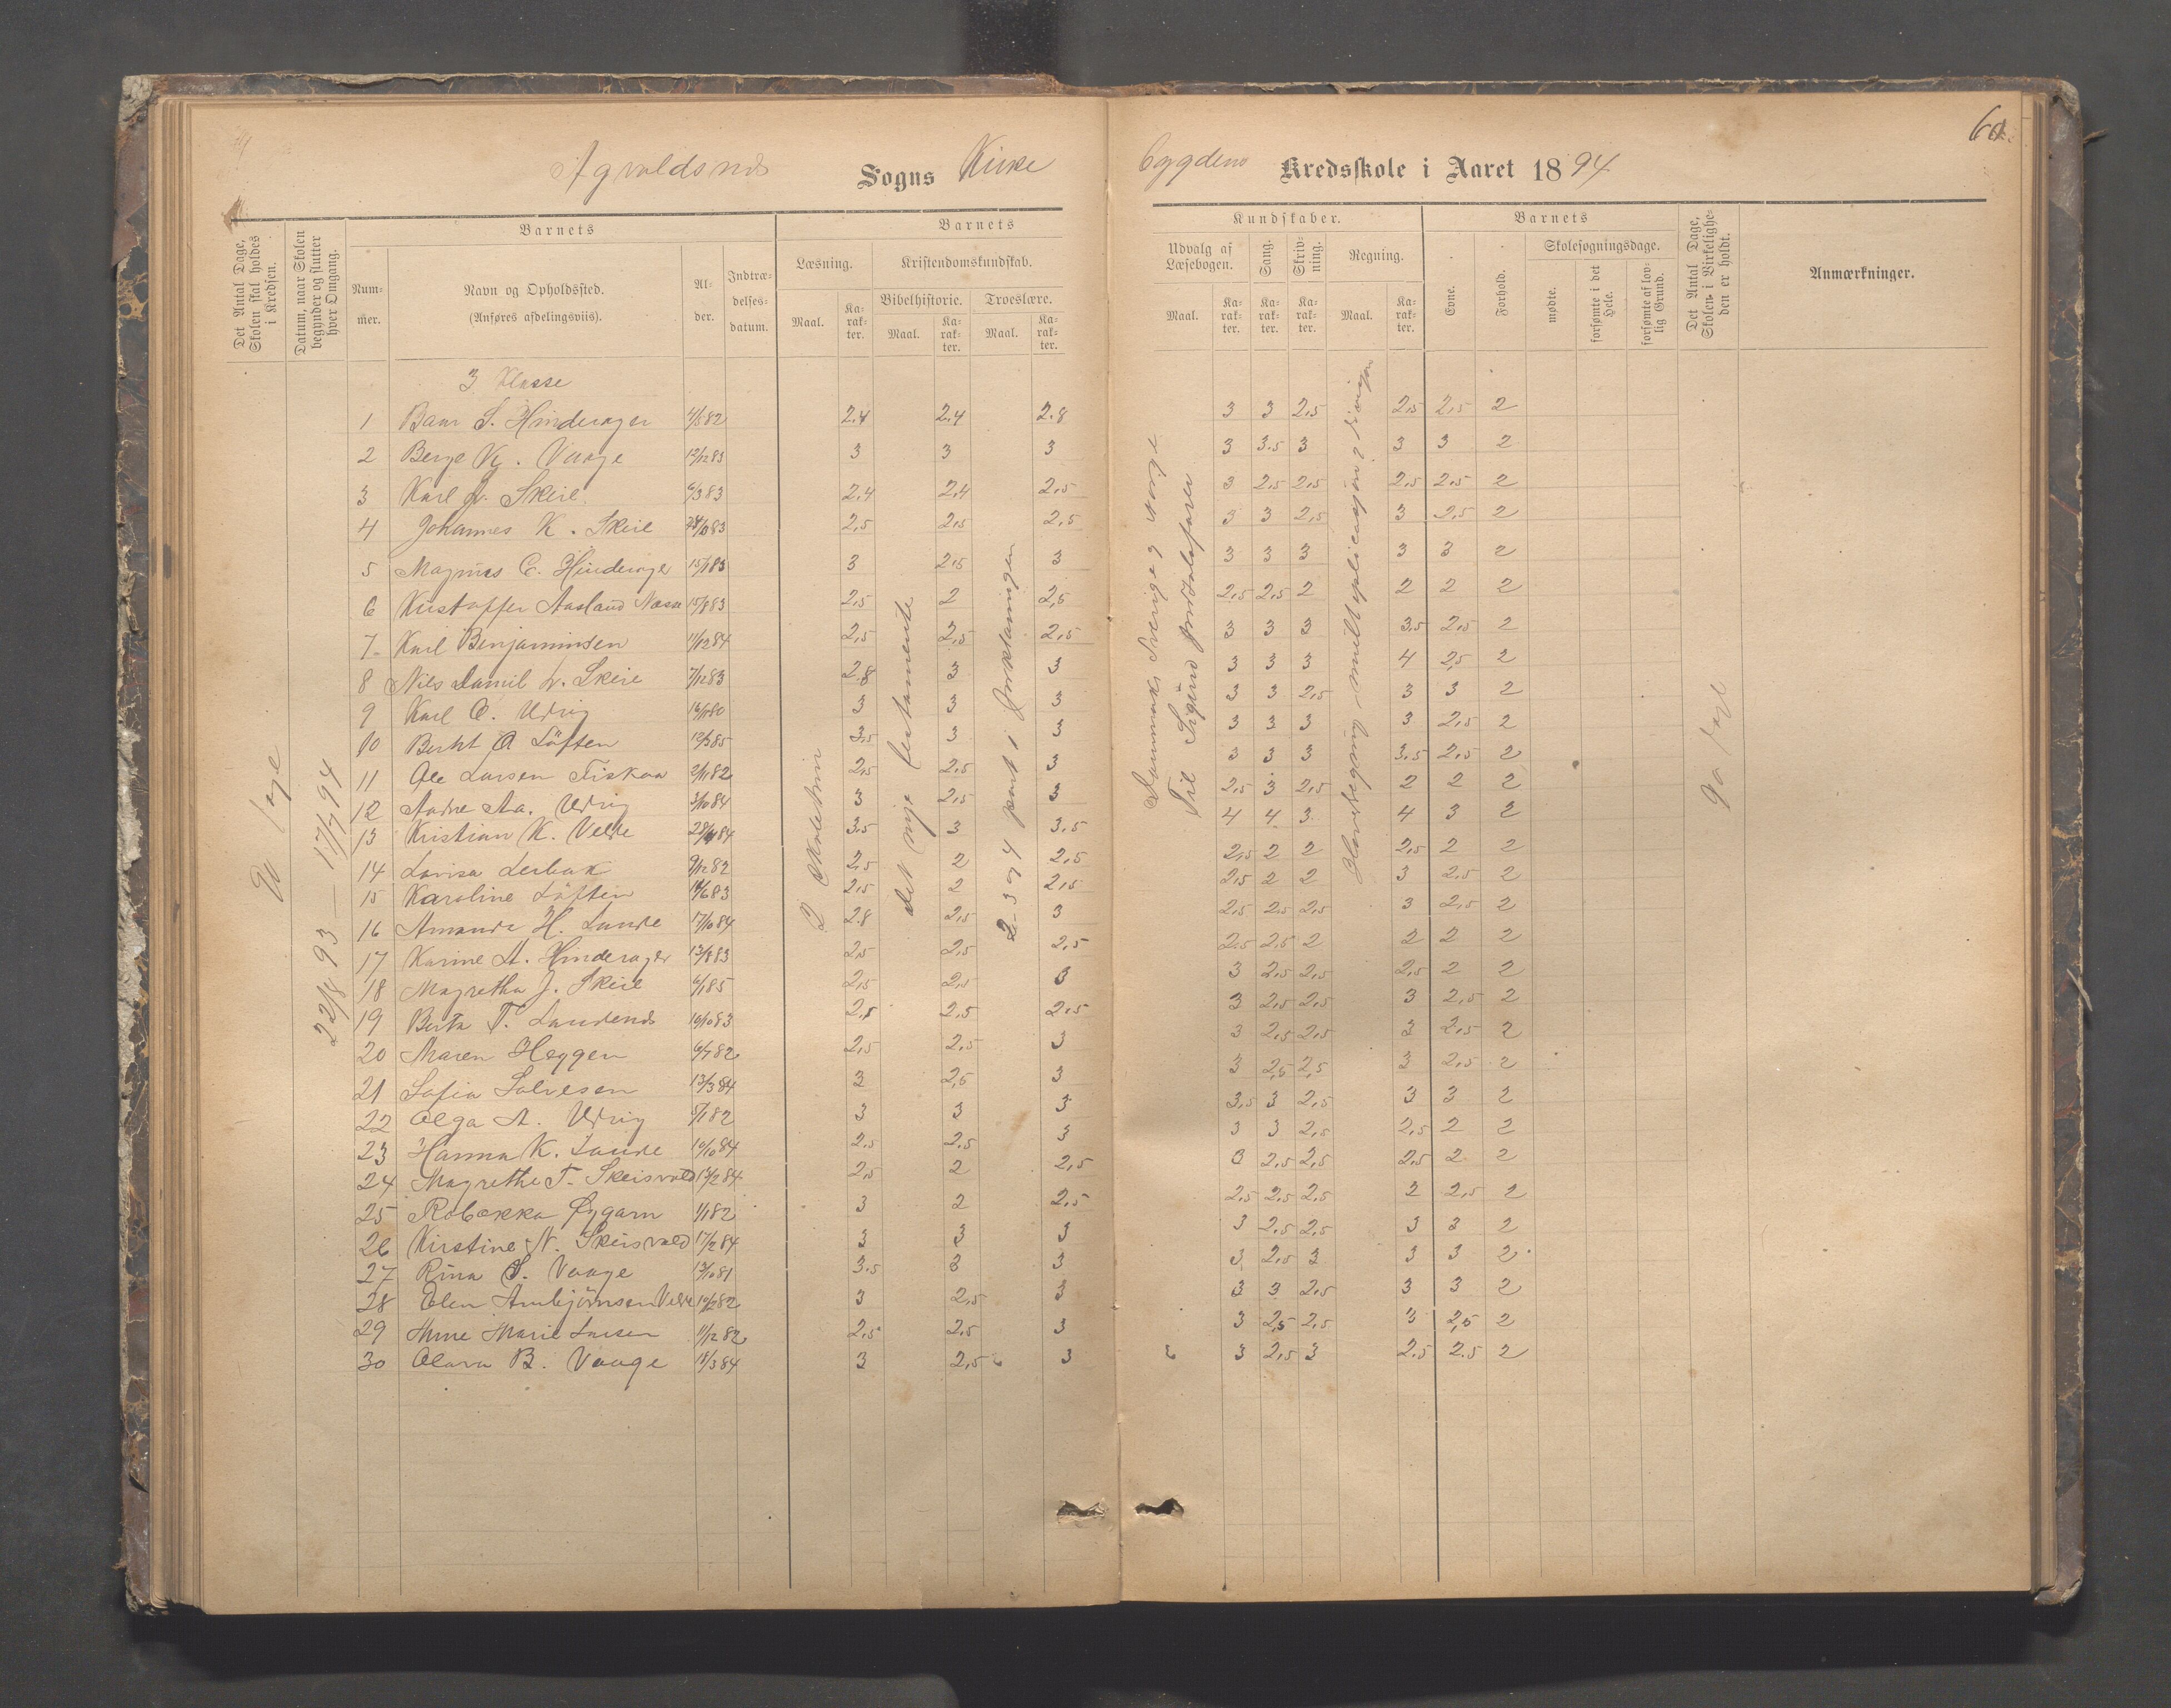 Sogns Kirke bygdens Kredsskole i Aaret 1894
60
Det Antal Dage, Skolen skal holdes i Kredsen.
Datum, naar Skolen begynder og slutter hver Omgang.
Barnets
Nummer.
Navn og Opholdssted.
(Anføres afdelingsviis).
Alder.
Indtrædelsesdatum.
Barnets
Læsning.
Kristendomskundskab.
Bibelhistorie.
Troeslære.
Maal.
Karakter.
Maal.
Karakter.
Maal.
Karakter.
Kundskaber.
Udvalg af Læsebogen.
Sang.
Skrivning.
Regning.
Maal.
Karakter.
Karakter.
Karakter.
Maal.
Karakter.
Barnets
Evne.
Forhold.
Skolesøgningsdage.
mødte.
forsømte i det Hele.
forsømte af lovlig Grund.
Det Antal Dage, Skolen i Virkeligheden er holdt.
Anmærkninger.
22/8 93 — 17/7 94
det nye testamente
2-3 og 4 part i forklaringen
Danmark Sverige og Norge
Til Sigurd Jorsalafarer
90 dage
3 Klasse
1 S. Hinderager 4/5 82 2.4 2.4 2.8 3 3 2,5 2,5 2,5 2
2 Berge K. Vaage 12/12 83 3 3 3 3 3.5 3 3 3 2
3 Karl J. Skeie 6/3 83 2,4 2,4 2,5 3 2,5 2,5 2,5 2,5 2
4 Johannes K. Skeie 83 2,5 2,5 2,5 3 3 2,5 3 2,5 2
5 Magnus E. Hinderager 83 3 2,5 3 3 3 3 3 3 2
6 Kristoffer Aasland Næsse 15/8 83 2,5 2 2,5 2,5 2,5 2 2 2 2
7 Karl Benjaminsen 11/12 84 2,5 2,5 2,5 3 3 3 3,5 2,5 2
8 Nils Daniel L. Skeie 7/12 83 2.8 3 3 3 3 3 4 2,5 2
9 Karl O. Udvig 3 3 3 3 3 2,5 3 3 2
10 Berht O Löften 85 3,5 3 3 3 3 3 3 2,5 2
11 Ole Larsen Fiskaa 2/11 82 2,5 2,5 3 3 3 3 3.5 2,5 2
12 Andre Aa. Udvig 3/10 84 3 2,5 3 2,5 3 2,5 2 2 2
13 Kristian K. Velde 84 3.5 3 3.5 4 4 3 4 3 2
14 Lovisa 9/12 82 2,5 2 2,5 2,5 2 2 2,5 2 2
15 Karoline Löften 14/6 83 2,5 2 2,5 2,5 2 2 3 2,5 2
16 Amanda H. Lunde 17/10 84 2.8 2,5 3 2,5 2,5 2,5 3 2,5 2
17 Karine A. Hinderager 13/8 83 2,5 2,5 2,5 2.5 2,5 2 2 2 2
18 Magretha J. Skeie 6/1 85 2,5 2,5 3 3 2,5 2,5 2,5 2 2
19 Berta T. 10/10 83 2,5 2,5 2,5 3 2,5 2,5 3 2,5 2
20 Maren Heggen 6/7 82 2,5 2,5 3 3 2,5 2,5 3 2,5 2
21 Sofia Salvesen 13/3 84 3 2,5 3 3 2,5 2,5 3 2,5 2
22 Olga A. Udvig 82 3 3 3 3,5 3 2,5 3 3 2
23 Hanna K. Lunde 10/10 84 2.5 2.5 3 3 3 2,5 2,5 2 2
24 Magrethe T. Skeisvold 84 2,5 2 2,5 3 2,5 2,5 2,5 2 2
25 Robekka Øygarn 1/1 82 3 2 2,5 2,5 2,5 2,5 2 2,5 2
26 Kirstine N. Skeisvold 17/2 84 3 3 3 3 2,5 2,5 3 3 2
27 Rina S. Vaage 13/10 81 3.5 3 3 3 2,5 3 3 3 2
28 Elen Arnbjörnsen Velde 82 3 2,5 3 3 3 2,5 3 3 2
29 Anne Marie Larsen 11/12 82 2,5 2,5 3 3 2,5 2,5 3 2,5 2
30 B. Vaage 18/3 84 3 2,5 3 3 2,5 3 2.5 2.5 2